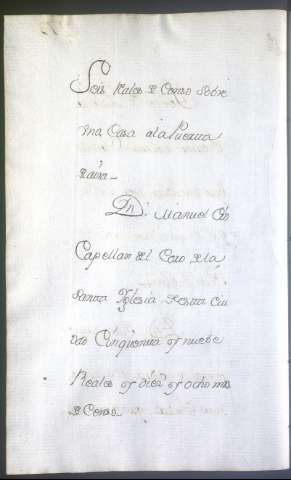 Seis Reales de Censo sobre
vna Casa a la Puerta
Dn. Manuel
Capellan del Coro de la
Santa Yglesia de esta Ciu
dad Cinquenta y nuebe
Reales y diez y ocho ms
de Censo